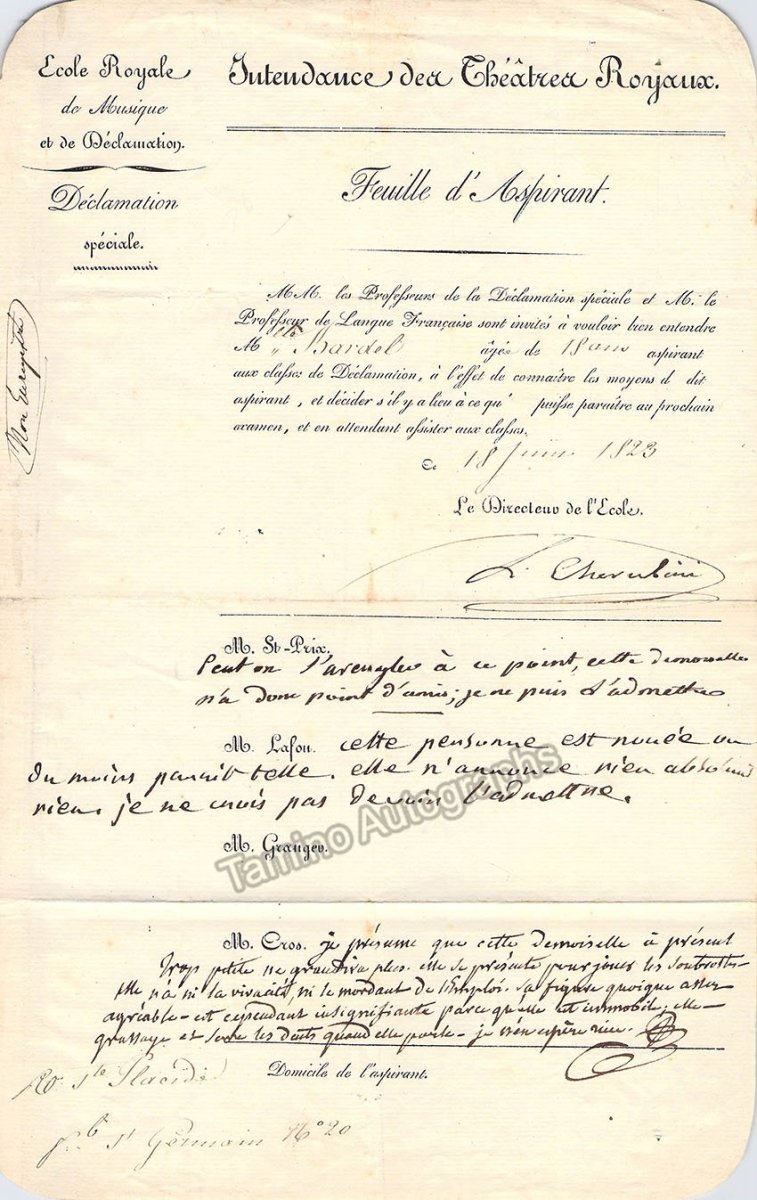 Ecole Royale
de Musique
et de Déclamation.
Déclamation
spéciale.
Intendance des Théâtres Royaux.
Feuille d'Aspirant.
MM. les Professeurs de la Déclamation spéciale et M. le
Professeur de Langue Française sont invités à vouloir bien entendre
M elle Bardel âgée de 18 ans aspirant
aux classes de Déclamation, à l'effet de connaître les moyens d dit
aspirant, et décider s'il y a lieu à ce qu' puisse paraître au prochain
examen, et en attendant assister aux classes.
Ce 18 Juin 1823
Le Directeur de l'Ecole.
L. Cherubini
M. St-Prix.
Peut on s'aveugler à ce point, cette demoiselle
n'a donc point d'amis; je ne puis l'admettre
M. Lafon. cette personne est nouée ou
du moins parait telle. elle n'annonce rien absolument
rien. je ne crois pas devoir l'admettre.
M. Granger.
M. Cros. je présume que cette demoiselle à présent
trop petite ne grandira plus. elle se présente pour jouer les soubrettes
elle n'a ni la vivacité, ni le mordant de l'Emploi. sa figure quoique assez
agréable est cependant insignifiante parce qu'elle est immobile; elle
grassaye et serre les dents quand elle parle. je n'en espère rien.
Domicile de l'aspirant.
Ste Placide
fb. St Germain No 20
Non Enregistré
Tamino Autographs